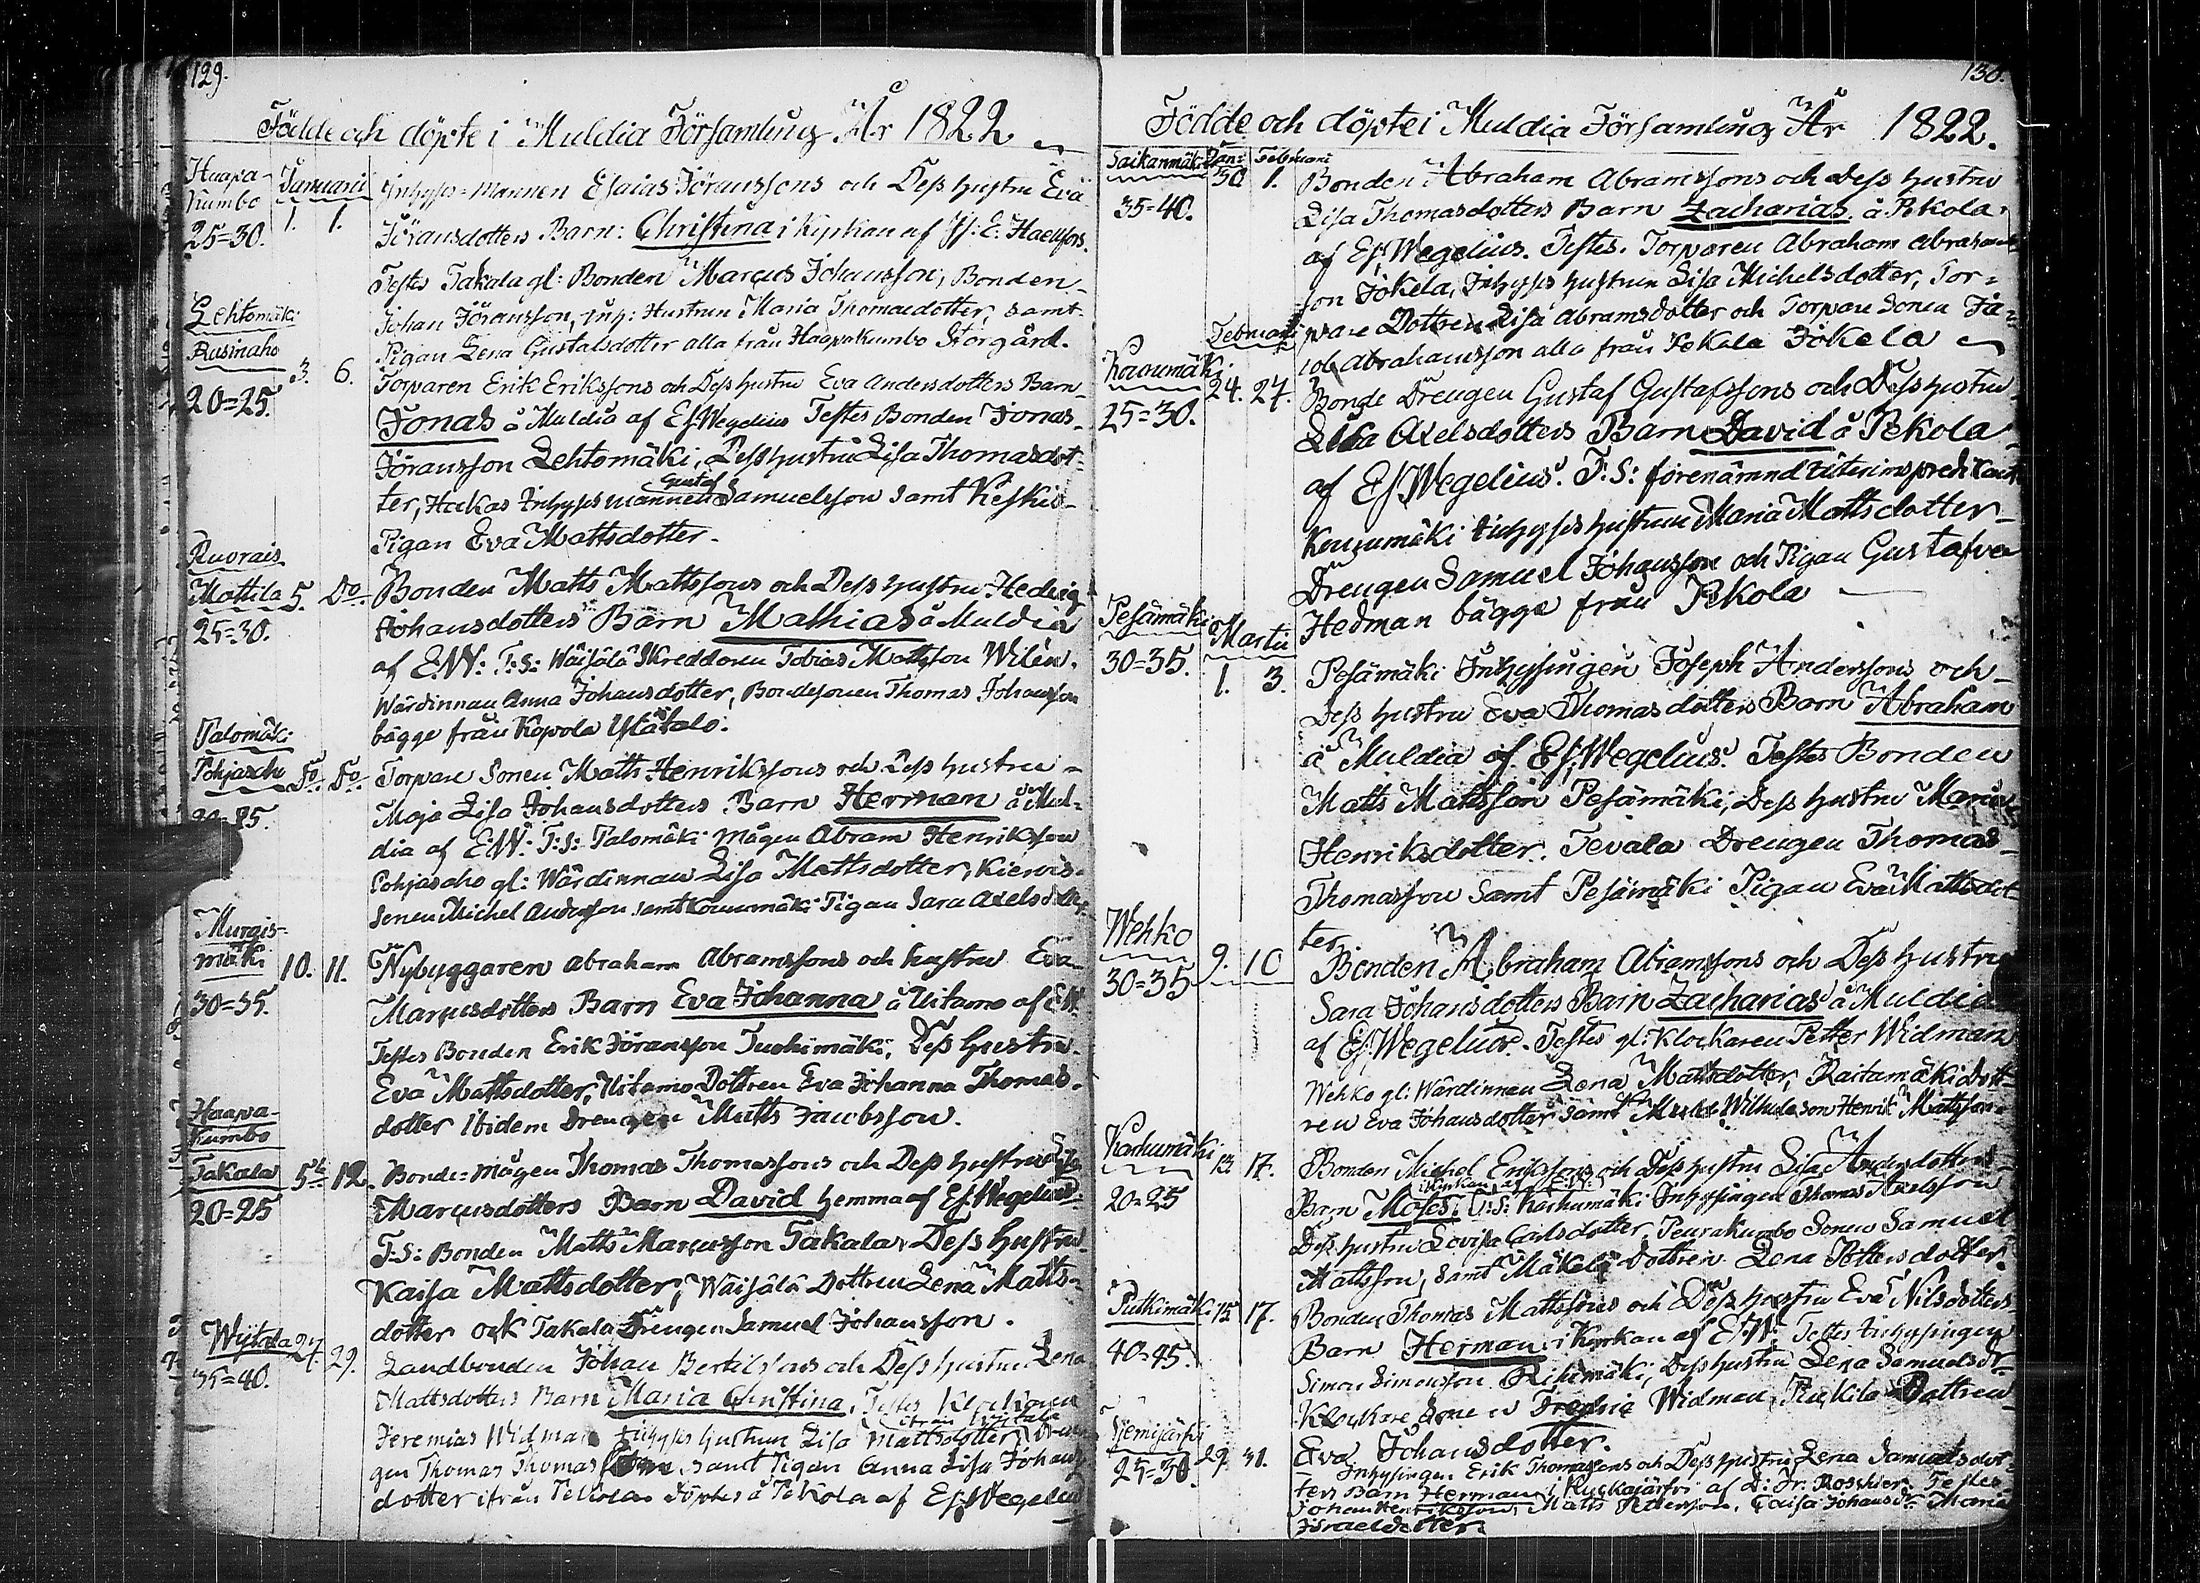 129.
Födde och döpte i Muldia Församling År 1822
Haapa-
kumbo
25=30.
Januarii
1. 1.
Inhyses-Mannen Esaias Jöranssons och Dess hustru Eva
Jöransdotters Barn: Christina i Kyrkan af
Testes Takala gl: Bonden Marcus Johansson, Bonden
Johan Jöransson, inh: Hustrun Maria Thomasdotter, samt
Pigan Lena Gustafsdotter alla från Haapakumbo Storgård.
Lehtomäki
Rusinaho
20=25.
3. 6.
Torparen Erik Erikssons och Dess hustru Eva Andersdotters Barn
Jonas å Muldia af Es. Wegelius Testes Bonden Jonas
Jöransson Lehtomäki, Dess hustru Lisa Thomasdot-
ter, Inhyses mannen Gustaf Samuelsson samt
Pigan Eva Mattsdotter.
Ruorais
Mattila
25=30.
5. Do
Bonden Matts Mattssons och Dess hustru Hedvig
Johansdotters Barn Mathias å Muldia
af E.W: T:S: Wäisälä Skreddaren Tobias Mattsson Wilén,
Wärdinnan Anna Johansdotter, Bondesonen Thomas Johansson
bägge från Kopola Ylätalo.
Palomäki
Pohjaseho
Do Do
Torpare Sonen Matts Henrikssons och Dess hustru
Maja Lisa Johansdotters Barn Herman å Mul-
dia af E.W: T:S: Palomäki Mågen Abram Henriksson
Pohjasaho gl: Wärdinnan Lisa Mattsdotter,
Sonen Michel Andersson samt Pigan Sara Axelsdotter
Murais-
mäki
30=35.
10. 11.
Nybyggaren Abraham Abramssons och hustru Eva
Marcusdotters Barn Eva Johanna å Uitamo af E.W.
Testes Bonden Erik Jöransson Tuohimäki, Dess hustru
Eva Mattsdotter, Uitamo Dottren Eva Johanna Thomas-
dotter Ibidem Drengen Matts Jacobsson.
Haapa-
kumbo
Takala
20=25
5te 12.
Bonde-mågen Thomas Thomassons och Dess hustru Lisa
Marcusdotters Barn David hemma af Es. Wegelius.
T:S: Bonden Matts Marcusson Takala, Dess hustru
Kaisa Mattsdotter, Wäisälä Dottren Lena Matts-
dotter och Takala Drengen Samuel Johansson.
Wijtala
35=40.
24. 29.
Landbonden Johan Bertilssons och Dess hustru Lena
Mattsdotters Barn Maria Christina, Testes Klockaren
Jeremias Widman Inhyses hustrun Lisa Mattsdotter ifrån Wijtala, Dren-
gen Thomas Thomasson samt Pigan Anna Lisa Johans-
dotter ifrån Pekola Döptes å Pekola af Es. Wegelius
130.
Födde och döpte i Muldia Församling År 1822.
Saikanmäki
35=40.
Jan: Februarii
30 1.
Bonden Abraham Abramssons och Dess hustru
Lisa Thomasdotters Barn Zacharias å Pekola
af Es. Wegelius. Testes. Torparen Abraham Abrahams-
son Jokela, Inhyses hustrun Lisa Michelsdotter, Tor-
pare Dottren Lisa Abramsdotter och Torpare Sonen Ja-
cob Abrahamsson alla från Pekola Jokela
Kourumäki
25=30.
Februarii
24. 27.
Bonde Drengen Gustaf Gustafssons och Dess hustru
Lisa Axelsdotters Barn David å Pekola
af Es. Wegelius. T:S: förenämnd interimspredikant
Kourumäki Inhyses hustrun Maria Mattsdotter
Drengen Samuel Johansson och Pigan Gustafva
Hedman bägge från Pekola
Pesämäki
30=35.
Martii
1. 3.
Pesämäki Inhysingen Joseph Anderssons och
Dess hustru Eva Thomasdotters Barn Abraham
å Muldia af Es. Wegelius. Testes Bonden
Matts Mattsson Pesämäki, Dess hustru Maria
Henriksdotter. Tevala Drengen Thomas
Thomasson samt Pesämäki Pigan Eva Mattsdot-
ter
Wehko
30=35
9. 10
Bonden Abraham Abramssons och Dess hustru
Sara Johansdotters Barn Zacharias å Muldia
af Es. Wegelius. Testes gl: Klockaren Petter Widman
Wehko gl: Wärdinnan Lena Mattsdotter, Raitamäki Dott-
ren Eva Johansdotter samt Wilhula son Henrik Mattsson
Karhumäki
20=25
13. 17.
Bonden Michel Erikssons och Dess hustru Lisa Andersdotters
Barn Moses i kyrkan af E.W. T:S: Karhumäki Inhysingen Thomas Axelsson
Dess hustru Lovisa Carlsdotter, Peurakumbo Sonen Samuel
Mattsson, samt Mäkelä Dottren Lena Pettersdotter.
Putkimäki
40=45.
15 17.
Bonden Thomas Mattssons och Dess hustru Eva Nilsdotters
Barn Herman i Kyrkan af E.W. Testes Inhysingen
Simon Simonsson Rihimäki, Dess hustru Lena Samuelsdr
Klockare Sonen Fredric Widman, Dottren
Eva Johansdotter.
25=30
29 31.
Inhysingen Erik Thomassons och Dess hustru Lena Samuelsdot-
ters Barn Herman i af D: Fr: Roschier Testes
Johan Henriksson, Matts Andersson, Caisa Johansdr Maria
Israelsdotter.